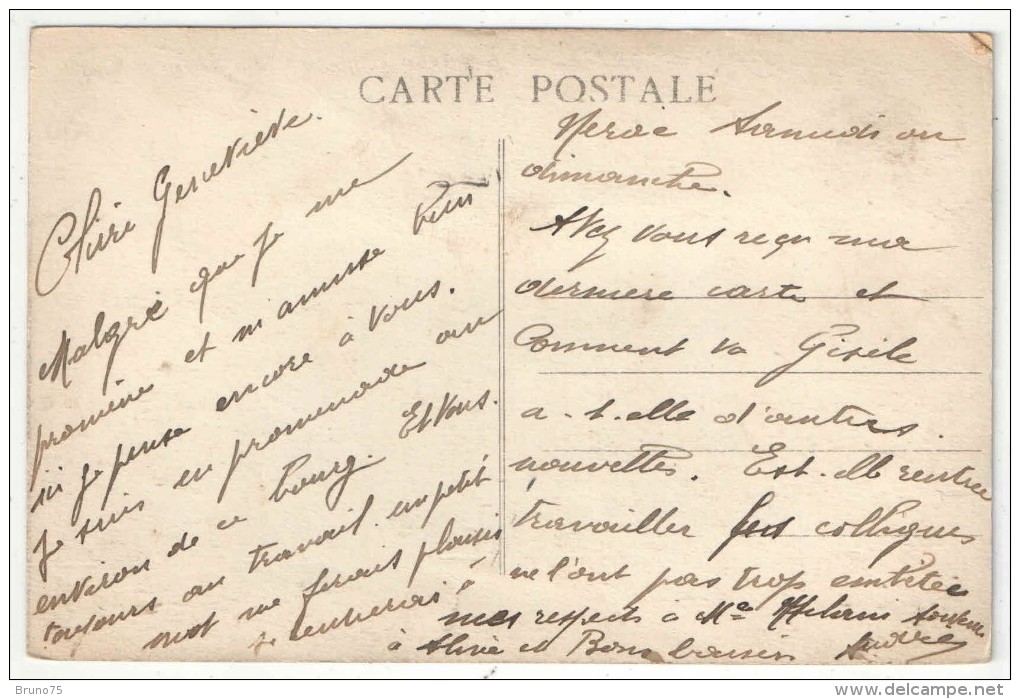 CARTE POSTALE
Chère Geneviève.
Malgré que je me
promène et m'amuse bien
ici je pense encore à vous.
je suis en promenade au
environ de ce bourg. Et vous.
toujours au travail. un petit
mot me ferais plaisir
je rentrerai à
Samedi ou
dimanche.
Avez vous reçu ma
dernière carte et
Comment va Gisèle
a-t-elle d'autres
nouvelles. Est-elle rentrée
travailler ses collègues
ne l'ont pas trop embêtée
mes respects à Me
à Aline et Bons baisers André
Bruno75
www.delcampe.net